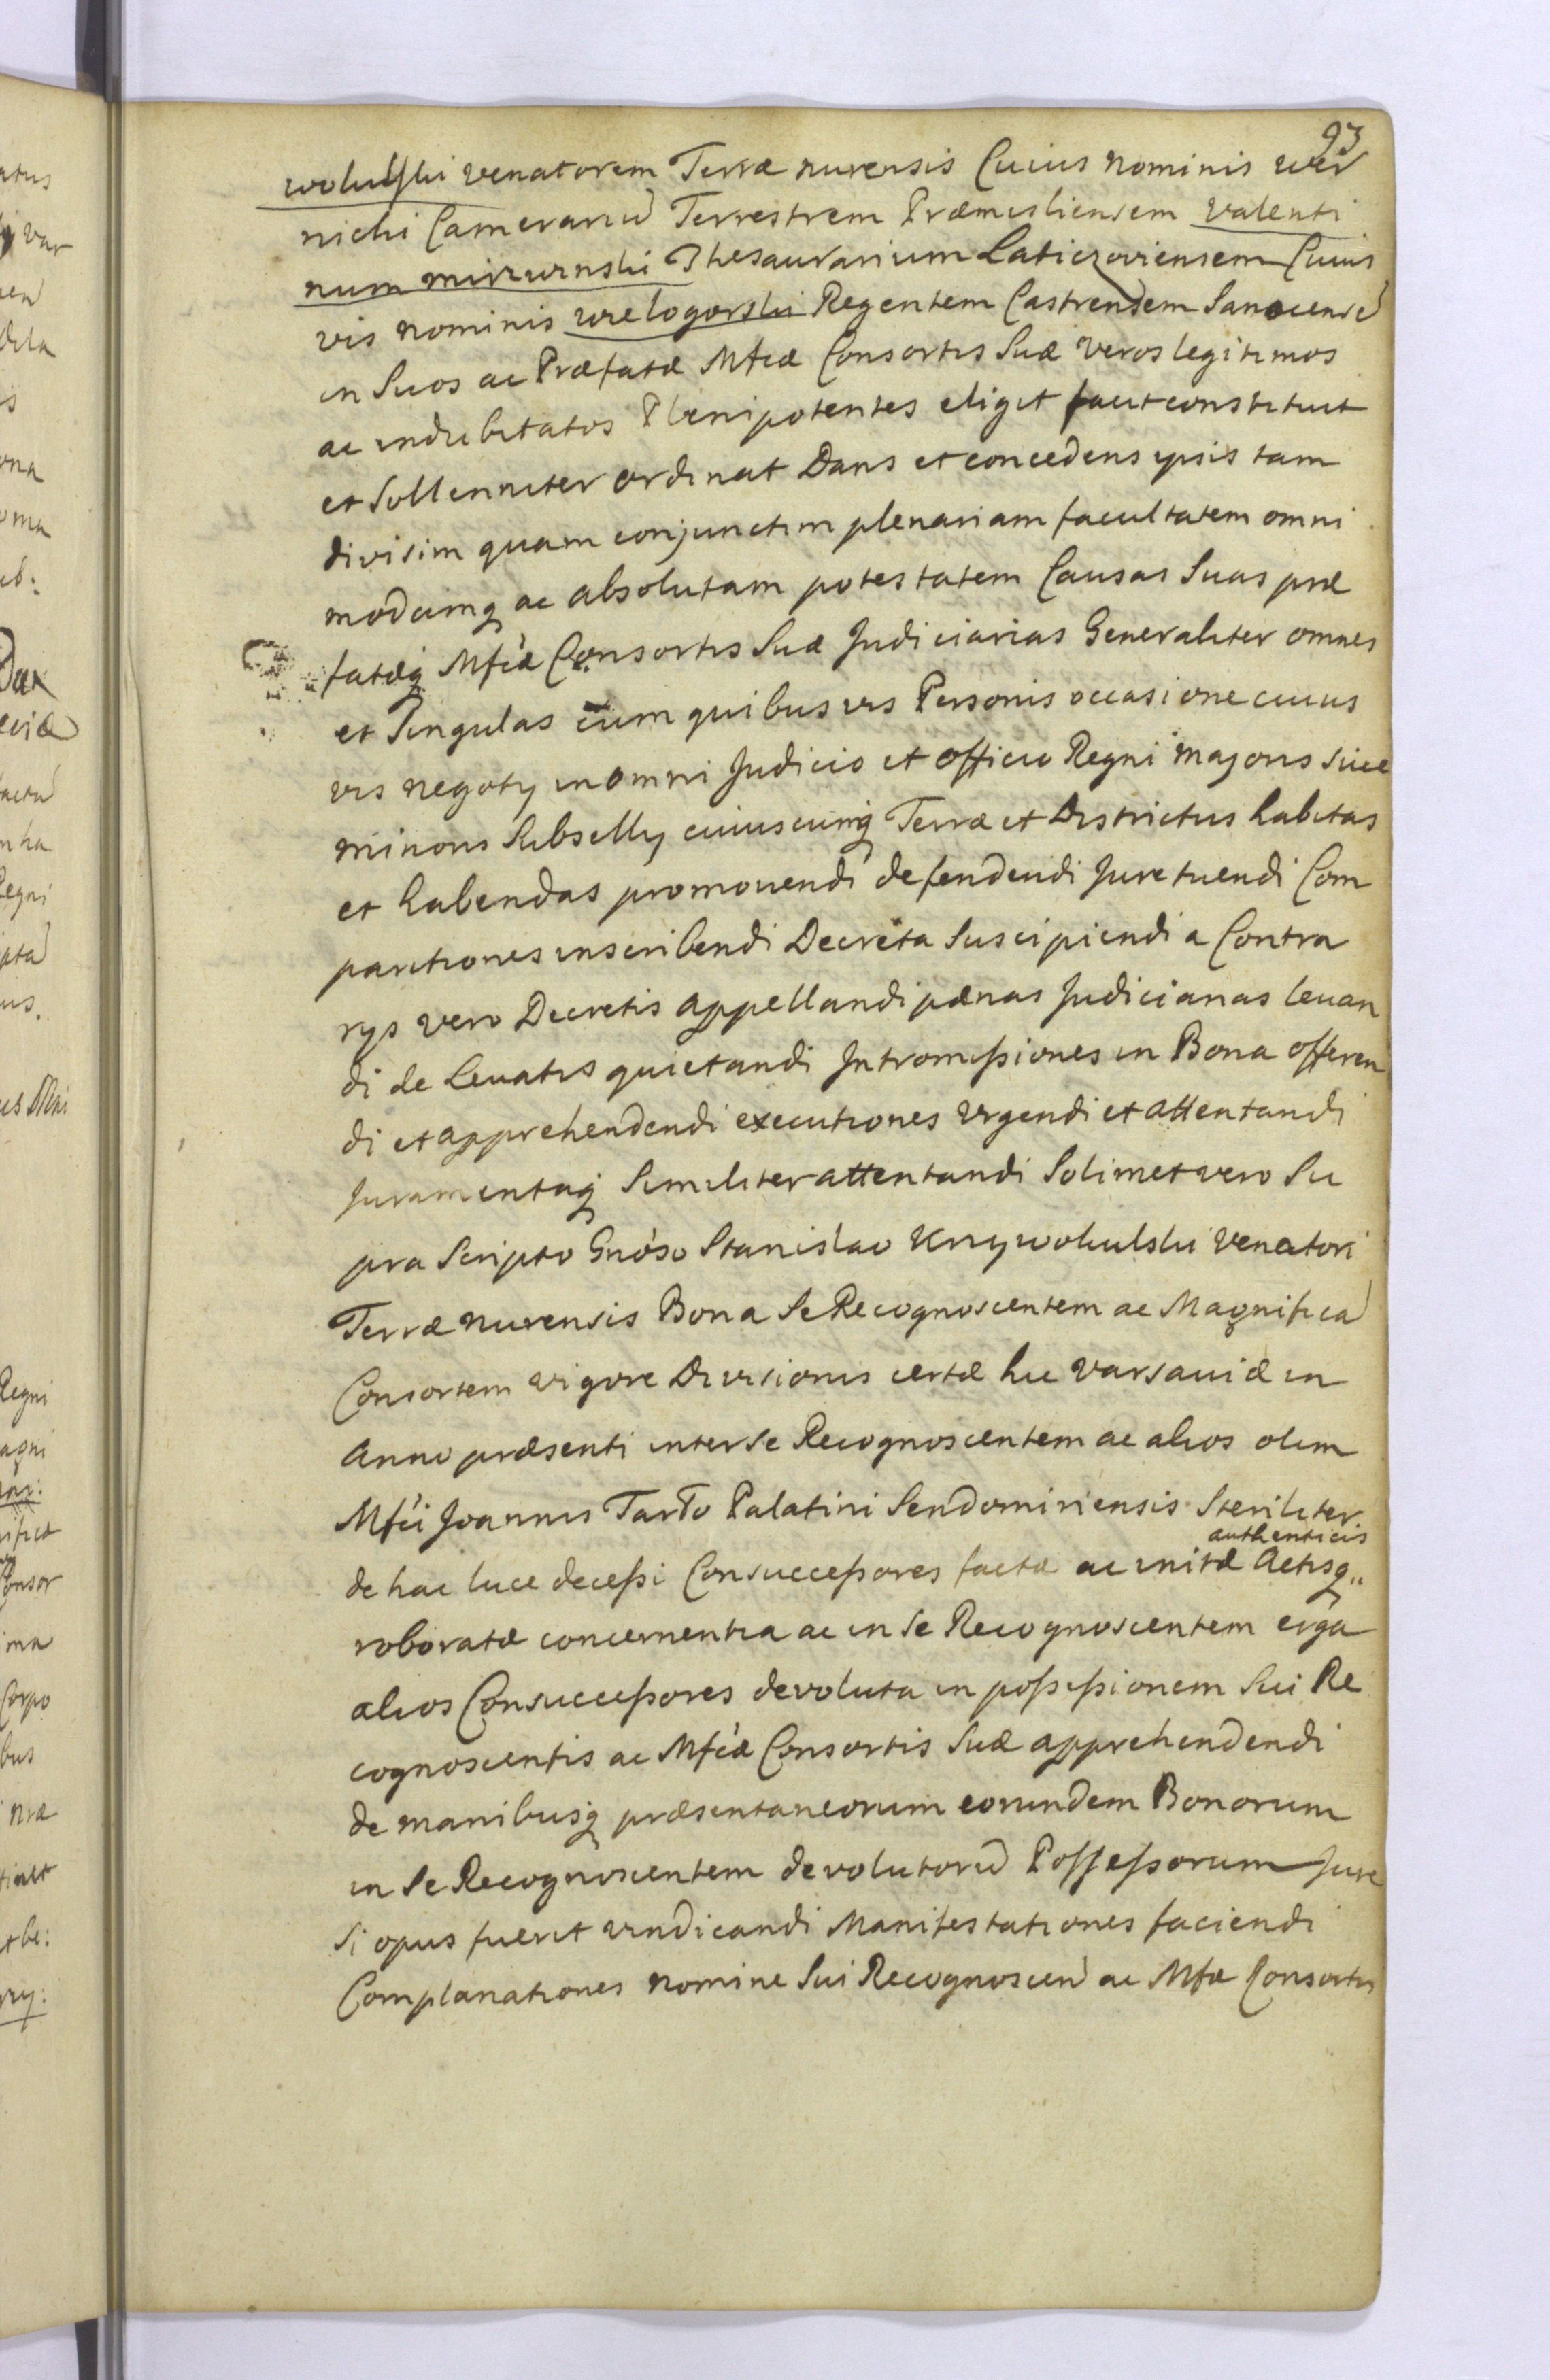 93
wolulski venatorem Terræ nurensis Cuius nominis wer
nichi Camerariũ Terrestrem Præmisliensem valenti
num mirzwnski Thesaurarium Laticzoviensem Cuius
vis nominis wielogorski Regentem Castrensem Sanocensẽ
in Suos ac Præfatæ Mfcæ Consortis Suæ veros legitimos
ac indubitatos Plenipotentes eligit facit constituit
et Sollenniter ordinat Dans et concedens ipsis tam
divisim quam conjunctim plenariam facultatem omni
modamq ac absolutam potestatem Causas Suas præ
fatæq Mfcæ Consortis Suæ Judiciarias Generaliter omnes
et Singulas cum quibusvis Personis occasione cuius
vis negoty in omni Judicio et officio Regni majoris Siue
minoris Subselly cuiuscunq Terræ et Districtus habitas
et habendas promouendi defendendi Jure tuendi Com
paritiones inscribendi Decreta Suscipiendi a Contra
rys vero Decretis appellandi pænas Judiciarias leuan
di de leuatis quietandi Intromissiones in Bona offeren
di et apprehendendi executiones urgendi et attentandi
Juramentaq Similiter attentandi Solimet vero Su
pra Scripto Gnoso Stanislao Krzywolulski venatori
Terræ nurensis Bona Se Recognoscentem ac Magnificã
Consortem vigore Divisionis certæ hic varsauiæ in
Anno præsenti inter Se Recognoscentem ac alios olim
Mfci Joannis Tarło Palatini Sendomiriensis Steriliter
authenticis
de hac luce decessi Consuccessores factæ ac initæ Actisq
roboratæ concernentia ac in Se Recognoscentem erga
alios Consuccessores devoluta in possessionem Sui Re
cognoscentis ac Mfcæ Consortis Suæ apprehendendi
de manibusq præsentaneorum eorundem Bonorum
in Se Recognoscentem devolutorũ Possessorum Jure
Si opus fuerit vindicandi Manifestationes faciendi
Complanationes nomine Sui Recognoscen ac Mfæ Consortis